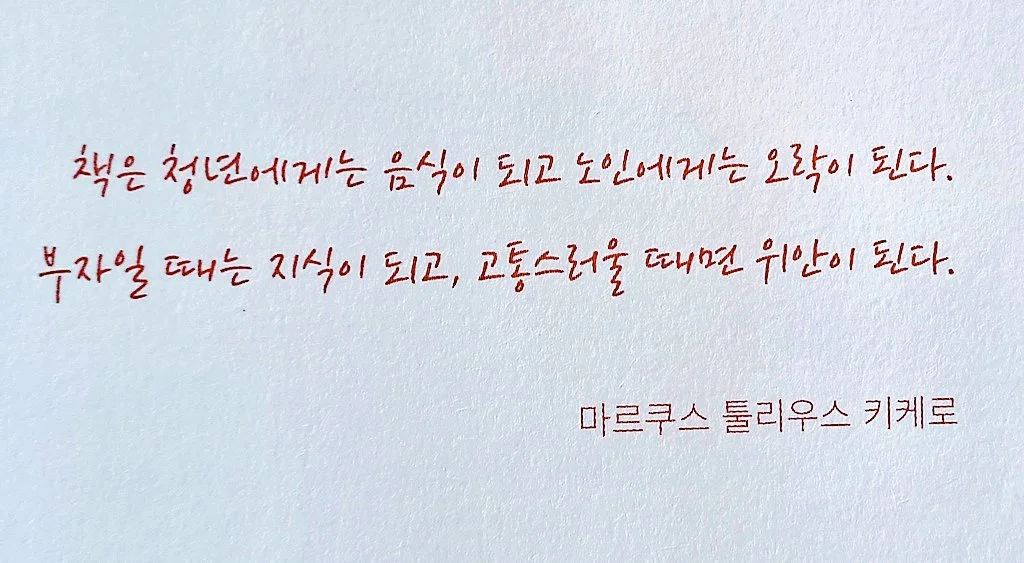 책은 청년에게는 음식이 되고 노인에게는 오락이 된다.
부자일 때는 지식이 되고, 고통스러울 때면 위안이 된다.
마르쿠스 툴리우스 키케로